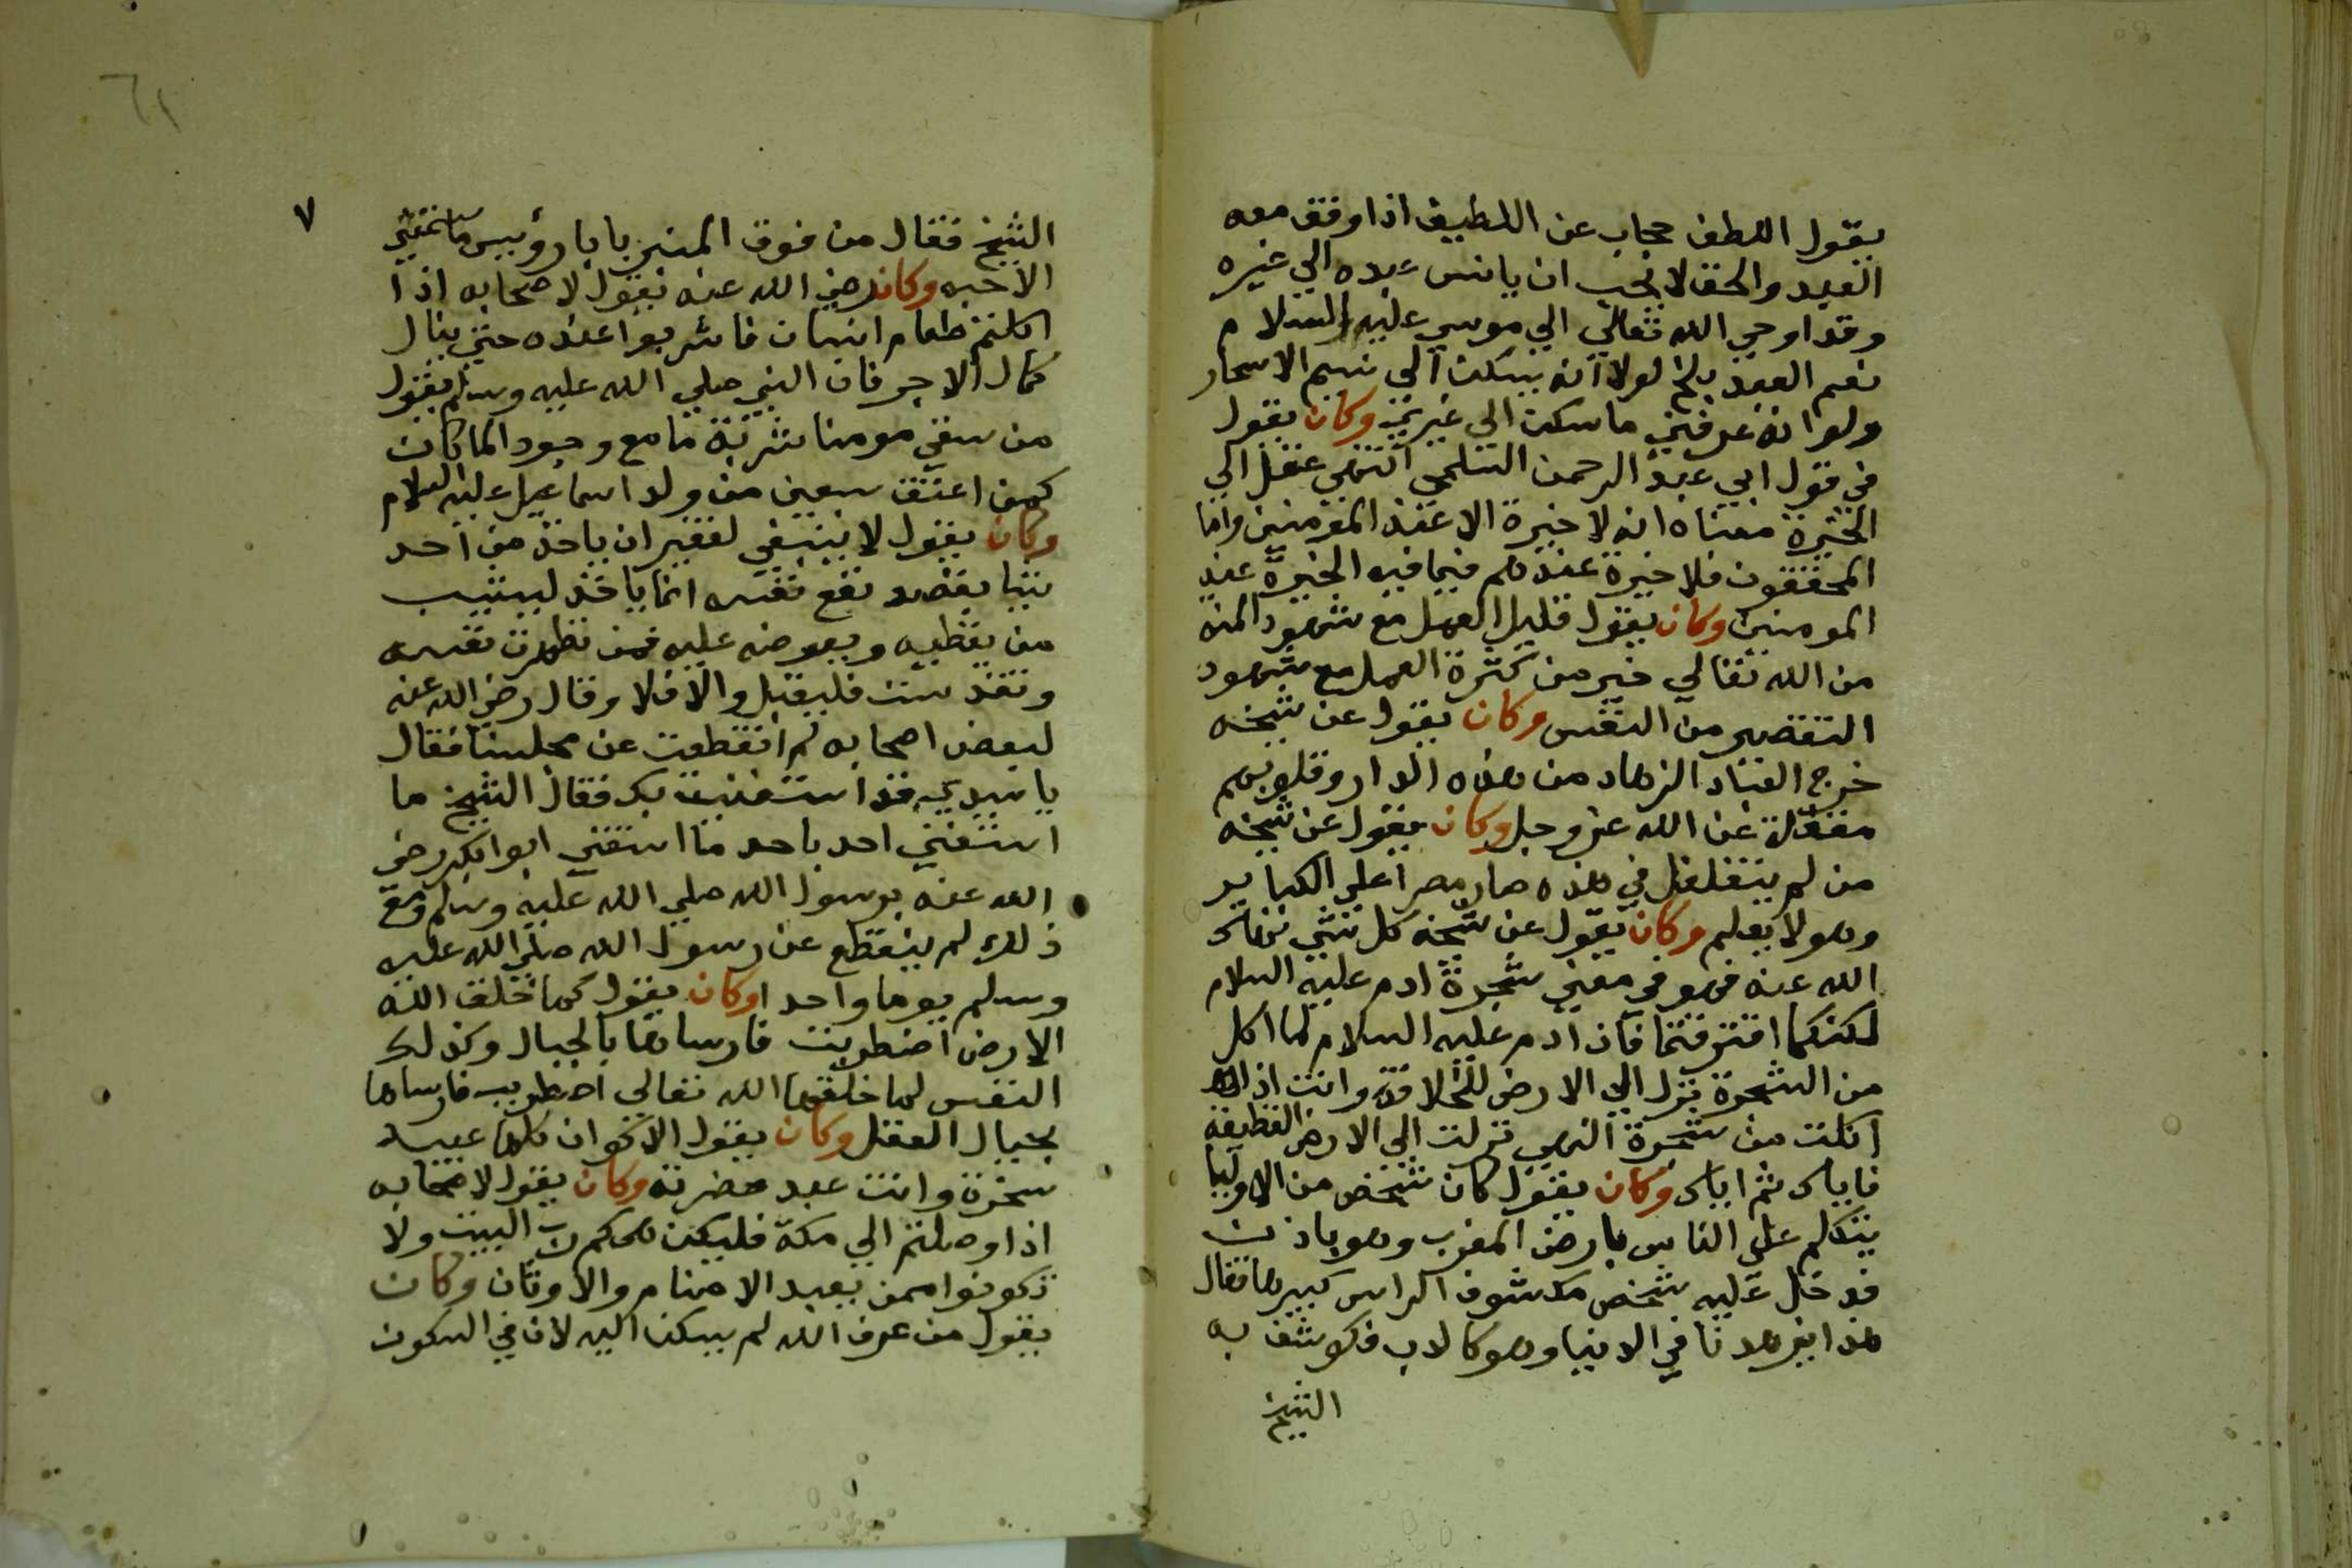 يقول اللطف حجاب عن اللطيف اذا وقف معه
العبد والحق لا يحب ان يانس عبده الي غيره
وقد اوحي الله تعالي الي موسي عليه السلام
نعم العبد برخ لولا انه يسكن الي نسيم الاسحار
ولو انه عرفني ما سكن الي غيري وكان يقول
في قول ابي عبد الرحمن السلمي انتهي عقل الي
الحيرة معناه انه لا حيرة الا عند المومنين واما
المحققون فلا حيرة عندهم فيما فيه الحيرة عند
المومنين وكان يقول قليل العمل مع شهود المنه
من الله تعالي خير من كثرة العمل مع شهود
التقصير من النفس وكان يقول عن شيخه
خرج العباد الزهاد من هذه الدار وقلوبهم
مقفلة عن الله عز وجل وكان يقول عن شيخه
من لم يتغلغل في هذه صار مصرا علي الكباير
وهو لا يعلم وكان يقول عن شيخه كل شي نهاك
الله عنه فهو في معني شجرة ادم عليه السلام
لكنكما افترقتما فان ادم عليه السلام لما اكل
من الشجرة نزل الي الارض للخلافة وانت اذا
اكلت من شجرة النهي نزلت الي الارض القطيعة
فاياك ثم اياك وكان يقول كان شخص من الاوليا
يتكلم علي الناس بارض المغرب وهو باذن
فدخل عليه شخص مكشوف الراس كبيرها فقال
هذا يزهدنا في الدنيا وهو كالدب فكوشف به
الشيخ
الشيخ فقال من فوق المنبر يابا رؤيس ما سمنني
الا حبه وكان رضي الله عنه يقول لاصحابه اذا
اكلتم طعام انسان فاشربوا عنده حتي ينال
كمال الاجر فان النبي صلي الله عليه وسلم يقول
من سقي مومنا شربة ما مع وجود الما كان
كمن اعتق سبعين من ولد اسماعيل عليه السلام
وكان يقول لا ينبغي لفقير ان ياخذ من احد
شيا يقصد نفع نفسه انما ياخذ ليثيب
من يعطيه ويعوضه عليه فمن تطهرت نفسه
وتقدست فليقبل والا فلا وقال رضي الله عنه
لبعض اصحابه لم انقطعت عن مجلسنا فقال
يا سيدي قد استغنيت بك فقال الشيخ ما
استغني احد باحد ما استغني ابو ابكر رضي
الله عنه برسول الله صلي الله عليه وسلم ومع
ذلك لم ينقطع عن رسول الله صلي الله عليه
وسلم يوما واحدا وكان يقول لما خلق الله
الارض اضطربت فارساها بالجبال وكذلك
النفس لما خلقها الله تعالي اضطربت فارساها
بجبال العقل وكان يقول الاكوان كلها عبيد
سخرة وانت عبد حضرته وكان يقول لاصحابه
اذا وصلتم الي مكة فليكن همكم رب البيت ولا
تكونوا ممن يعبد الاصنام والاوثان وكان
يقول من عرف الله لم يسكن اليه لان في السكون
٧